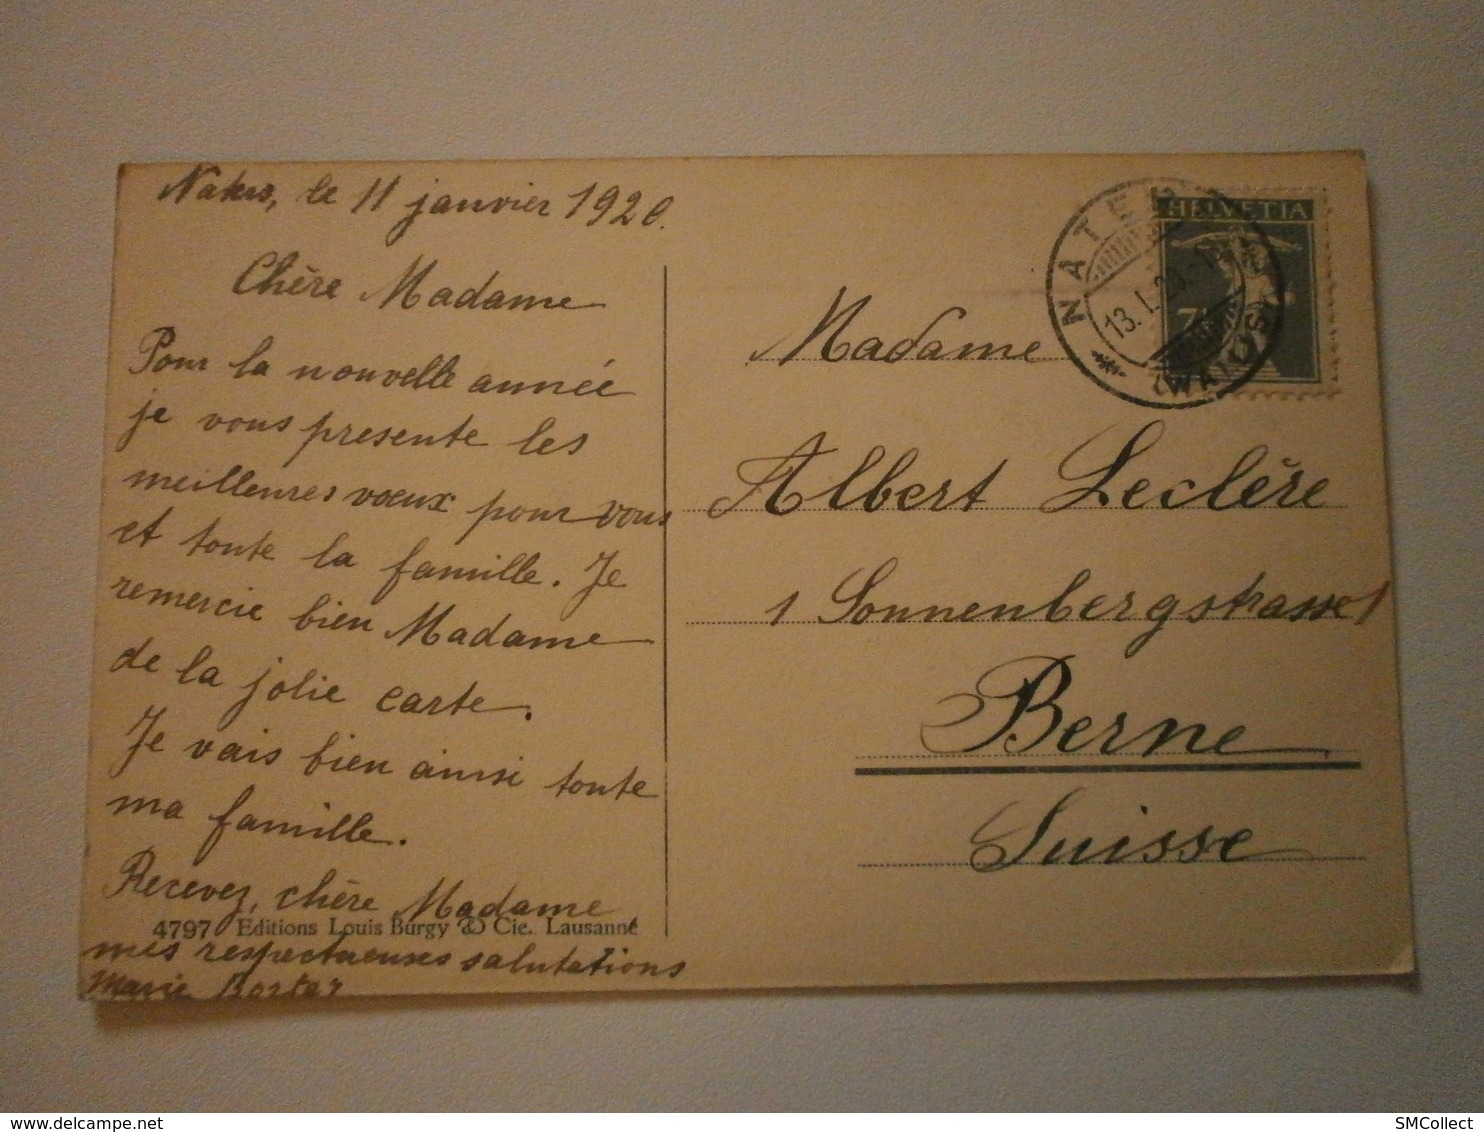 Naters, le 11 janvier 1920.
Chère Madame
Pour la nouvelle année
je vous presente les
meilleures voeux pour vous
et toute la famille. Je
remercie bien Madame
de la jolie carte.
Je vais bien ainsi toute
ma famille.
Recevez, chère Madame
4797 Editions Louis Burgy & Cie. Lausanne
mes respectueuses salutations
Marie Borter
NATERS
13.I.20.
(WALLIS)
HELVETIA
7½
Madame
Albert Leclère
1 Sonnenbergstrasse 1
Berne
Suisse
www.delcampe.net
SMCollect